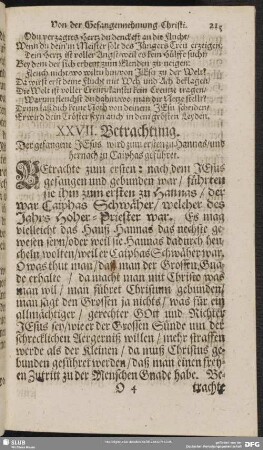 Von der Gefangennehmung Christi. 215
O du verzagtes Hertz du denckest an die Flucht/
Wenn du deinem Meister solt des Jüngers Treu erzeigen;
Dein Hertz ist voller Angst weil es kein Hülffe sucht
Bey dem der sich erbeut zum Elenden zu neigen:
Fleuch nicht, wo wiltu hin von JEsu in der Welt?
Du wirst erst deine Flucht mit Weh und Ach beklagen;
Die Welt ist voller Creutz/
Warum fleuchst du dahin wo man die Netze stellt?
Drum laß dich keine Noth von deinem JEsu schrecken/
Er wird dein Tröster seyn auch in dem grösten Leyden.
XXVII. Betrachtung.
Der gefangene JEsus wird zum ersten zu Hannas/ und
hernach zu Caiphas geführet.
Betrachte zum ersten: nach dem JEsus
gefangen und gebunden war/ führten
sie ihn zum ersten zu Hannas/ der
war Caiphas Schwäher/ welcher des
Jahrs Hoher-Priester war. Es mag
vielleicht das Hauß Hannas das nechste ge-
wesen seyn/ oder weil sie Hannas dadurch heu-
cheln wolten/ weil er Caiphas Schwäher war.
O was thut man/ daß man der Grossen Gna-
de erhalte/ da macht man mit Christo was
man will/ man führet Christum gebunden/
man sagt den Grossen ja nichts/ was für ein
allmächtiger/ gerechter GOtt und Richter
JEsus sey/ wie er der Grossen Sünde um der
schrecklichen Aergerniß willen/ mehr straffen
werde als der Kleinen/ da muß Christus ge-
bunden geführet werden/ daß man einen frey-
en Zutritt zu der Menschen Gnade habe. Be-
O 4 trachte
SLUB
DFG